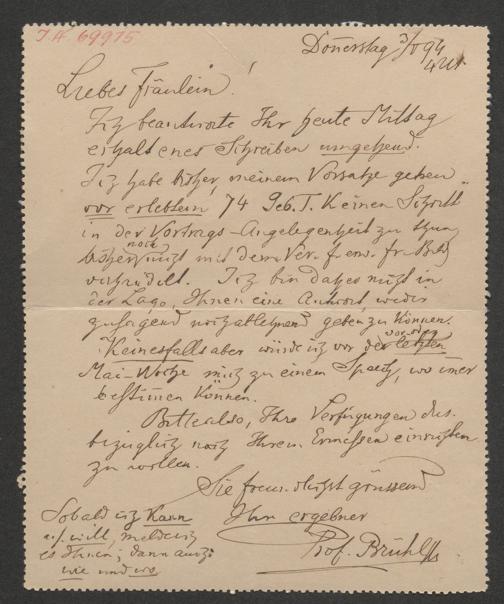 J.N. 69975
Donnerstag 3/V 94
4 Uhr
Liebes Fräulein!
Ich beantworte Ihr heute Mittag
erhaltenes Schreiben umgehend.
Ich habe bisher, meinem Vorsatze gemäß
vor erlebtem 74 Geb.T. keinen Schritt
in der Vortrags-Angelegenheit zu thun,
bisher noch nicht mit dem Ver. f. erw. Fr. Bild
verhandelt. Ich bin daher nicht in
der Lage, Ihnen eine Antwort, weder
zusagend noch ablehnend geben zu können.
Keinesfalls aber würde ich vor der vorletzten
Mai-Woche mich zu einem Speech, wo immer
bestimmen können.
Bitte also, Ihre Verfügungen dies-
bezüglich nach Ihrem Ermessen einrichten
zu wollen.
Sie freundlichst grüssend
Ihr ergebner
Prof. Brühl
Sobald ich kann
u. will, melde ich
es Ihnen; dann auch:
wie und wo